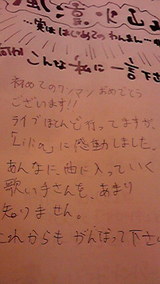 …実ははじめてのわんまん…
こんな私に一言下さい
初めてのワンマンおめでとう
ございます!!
ライブほとんど行ってますが、
「Lila」に感動しました。
あんなに、曲に入っていく
歌い手さんを、あまり
知りません。
これからもがんばって下さ